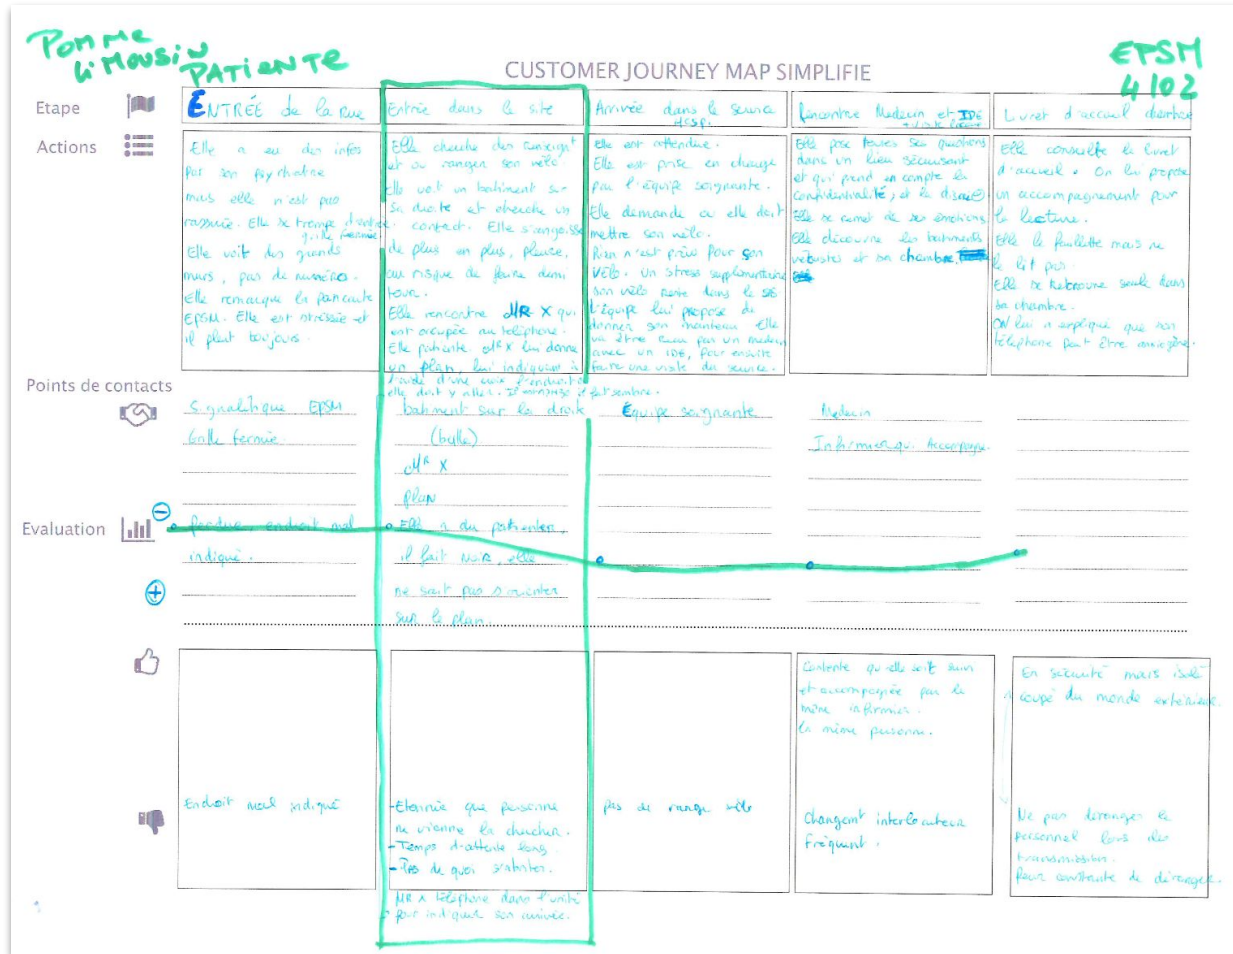 POMME
LIMOUSIN
PATIENTE
EPSM
4/02
CUSTOMER JOURNEY MAP SIMPLIFIE
Etape
ENTRÉE de la rue
Entrée dans le site
Arrivée dans le service
Hospi
Rencontre Medecin et IDE
Livret d'accueil chambre
Actions
Elle a eu des infos
par son psychatre
mais elle n'est pas
rassurée. Elle se trompe d'entrée.
grille fermée
Elle voit des grands
murs, pas de numéro.
Elle remarque la pancarte
EPSM. Elle est stressée et
il pleut toujours.
Elle cherche des renseignt
et où ranger son vélo
Elle voit un batiment sur
sa droite et cherche un
contact. Elle s'angoisse
de plus en plus, pleure,
au risque de faire demi
tour.
Elle rencontre MR X qui
est occupée au téléphone.
Elle patiente. MR X lui donne
un plan, lui indiquant à
l'aide d'une croix l'endroit où
elle doit y aller. Il fait sombre.
Elle est attendue.
Elle est prise en charge
par l'équipe soignante.
Elle demande où elle doit
mettre son vélo.
Rien n'est prévu pour son
vélo. Un stress supplémentaire
son vélo reste dans le
L'équipe lui propose de
donner son manteau. Elle
va être reçu par un medecin
avec un IDE, pour ensuite
faire une visite du service.
Elle pose toutes ses questions
dans un lieu sécurisant
et qui prend en compte la
confidentialité, et la
Elle se remet de ses émotions
Elle découvre les batiments
vétustes et sa chambre.
Elle consulte le livret
d'accueil. On lui propose
un accompagnement pour
la lecture.
Elle le feuillette mais ne
le lit pas
Elle se retrouve seule dans
sa chambre.
On lui a expliqué que son
téléphone peut être anxiogène.
Points de contacts
Signalétique EPSM
Grille fermée
batiment sur la droite
(bulle)
MR X
Plan
Équipe soignante
Medecin
Infirmier qui Accompagne
Evaluation
Perdue, endroit mal
indiqué.
Elle a du patienter,
il fait noir, elle
ne sait pas s'orienter
sur le plan.
Contente qu'elle soit suivi
et accompagnée par le
même infirmier.
la même personne.
En sécurité mais isolé
coupé du monde extérieur.
Endroit mal indiqué
-Etonnée que personne
ne vienne la chercher.
-Temps d'attente long
-Pas de quoi s'abriter.
MR X téléphone dans l'unité
pour indiquer son arrivée.
Pas de range vélo
Changemt interlocuteur
Fréquent.
Ne pas déranger le
personnel lors des
transmission.
Peur constante de déranger.